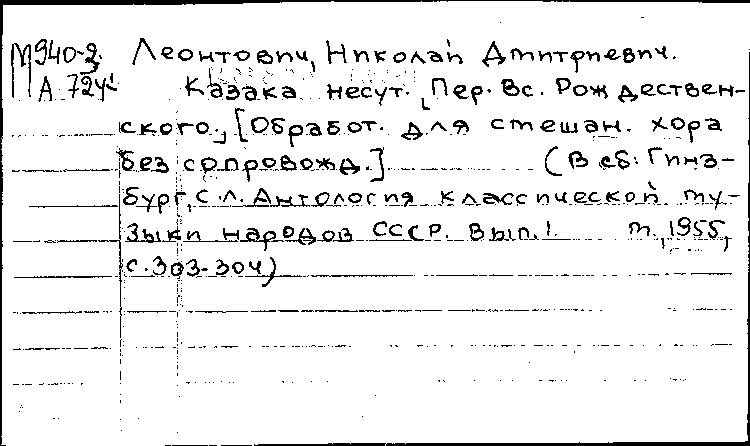 М940-2 Леонтович, Николай Дмитриевич.
А 724 Казака несут. Пер. Вс. Рождествен-
ского., [Обработ. для смешан. хора
без сопровожд.] (В сб: Гинз-
бург, С.Л. Антология классической му-
зыки народов СССР. Вып. I. М., 1955,
с. 303-304)